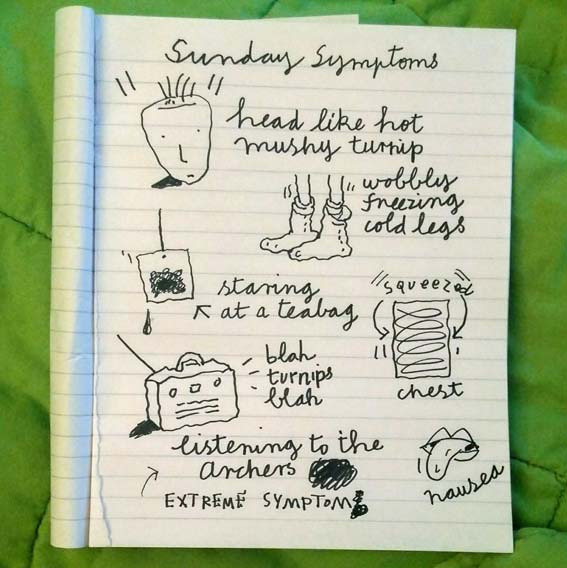 Sunday Symptoms
head like hot
mushy turnip
wobbly
freezing
cold legs
staring
at a teabag
squeezed
chest
blah
turnips
blah
listening to the
archers
EXTREME SYMPTOM
nausea